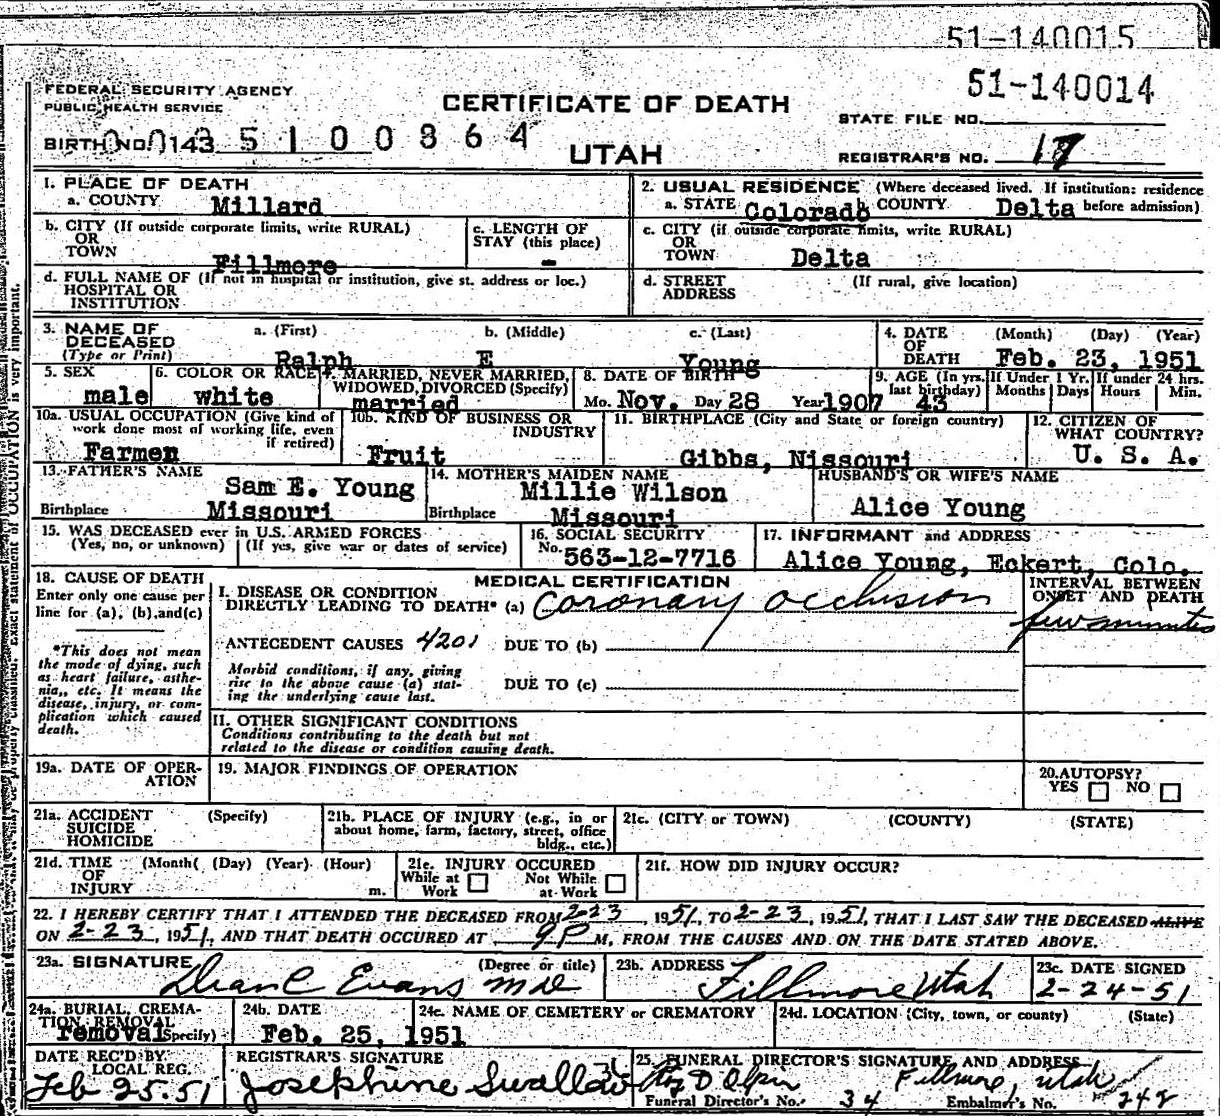 51-140015
51-140014
FEDERAL SECURITY AGENCY
PUBLIC HEALTH SERVICE
CERTIFICATE OF DEATH
STATE FILE NO.
BIRTH NO. 0143 5 1 0 0 8 6 4
UTAH
REGISTRAR'S NO. 17
1. PLACE OF DEATH
a. COUNTY Millard
2. USUAL RESIDENCE (Where deceased lived. If institution: residence before admission)
a. STATE Colorado b. COUNTY Delta
b. CITY (If outside corporate limits, write RURAL)
OR
TOWN Fillmore
c. LENGTH OF
STAY (this place) -
c. CITY (if outside corporate limits, write RURAL)
OR
TOWN Delta
d. FULL NAME OF (If not in hospital or institution, give st. address or loc.)
HOSPITAL OR
INSTITUTION
d. STREET (If rural, give location)
ADDRESS
3. NAME OF DECEASED
(Type or Print)
a. (First) b. (Middle) c. (Last)
Ralph E Young
4. DATE OF DEATH (Month) (Day) (Year)
Feb. 23, 1951
5. SEX
male
6. COLOR OR RACE
white
7. MARRIED, NEVER MARRIED,
WIDOWED, DIVORCED (Specify)
married
8. DATE OF BIRTH
Mo. Nov. Day 28 Year 1907
9. AGE (In yrs. last birthday) 43
If Under 1 Yr. Months Days
If under 24 hrs. Hours Min.
10a. USUAL OCCUPATION (Give kind of
work done most of working life, even
if retired)
Farmen
10b. KIND OF BUSINESS OR
INDUSTRY
Fruit
11. BIRTHPLACE (City and State or foreign country)
Gibbs, Nissouri
12. CITIZEN OF
WHAT COUNTRY?
U. S. A.
13. FATHER'S NAME
Sam E. Young
Birthplace Missouri
14. MOTHER'S MAIDEN NAME
Millie Wilson
Birthplace Missouri
HUSBAND'S OR WIFE'S NAME
Alice Young
15. WAS DECEASED ever in U.S. ARMED FORCES
(Yes, no, or unknown) (If yes, give war or dates of service)
16. SOCIAL SECURITY
No. 563-12-7716
17. INFORMANT and ADDRESS
Alice Young, Eckert, Colo.
18. CAUSE OF DEATH
Enter only one cause per
line for (a), (b), and (c)
*This does not mean
the mode of dying, such
as heart failure, asthe-
nia,, etc. It means the
disease, injury, or com-
plication which caused
death.
MEDICAL CERTIFICATION
I. DISEASE OR CONDITION
DIRECTLY LEADING TO DEATH* (a) Coronary occlusion
INTERVAL BETWEEN
ONSET AND DEATH
few minutes
ANTECEDENT CAUSES 4201 DUE TO (b)
Morbid conditions, if any, giving
rise to the above cause (a) stat-
ing the underlying cause last.
DUE TO (c)
II. OTHER SIGNIFICANT CONDITIONS
Conditions contributing to the death but not
related to the disease or condition causing death.
19a. DATE OF OPER-
ATION
19. MAJOR FINDINGS OF OPERATION
20. AUTOPSY?
YES NO
21a. ACCIDENT (Specify)
SUICIDE
HOMICIDE
21b. PLACE OF INJURY (e.g., in or
about home, farm, factory, street, office
bldg., etc.)
21c. (CITY or TOWN) (COUNTY) (STATE)
21d. TIME (Month( (Day) (Year) (Hour)
OF
INJURY m.
21e. INJURY OCCURED
While at Work Not While at Work
21f. HOW DID INJURY OCCUR?
22. I HEREBY CERTIFY THAT I ATTENDED THE DECEASED FROM 2-23, 1951, TO 2-23, 1951, THAT I LAST SAW THE DECEASED ALIVE
ON 2-23, 1951, AND THAT DEATH OCCURED AT 9P M, FROM THE CAUSES AND ON THE DATE STATED ABOVE.
23a. SIGNATURE (Degree or title)
Dean C Evans MD
23b. ADDRESS
Fillmore Utah
23c. DATE SIGNED
2-24-51
24a. BURIAL, CREMA-
TION, REMOVAL
removal (Specify)
24b. DATE
Feb. 25, 1951
24c. NAME OF CEMETERY or CREMATORY
24d. LOCATION (City, town, or county) (State)
DATE REC'D BY
LOCAL REG.
Feb 25.51
REGISTRAR'S SIGNATURE
Josephine Swallow
25. FUNERAL DIRECTOR'S SIGNATURE AND ADDRESS
Roy D Olpin Fillmore, Utah
Funeral Director's No. 34 Embalmer's No. 248